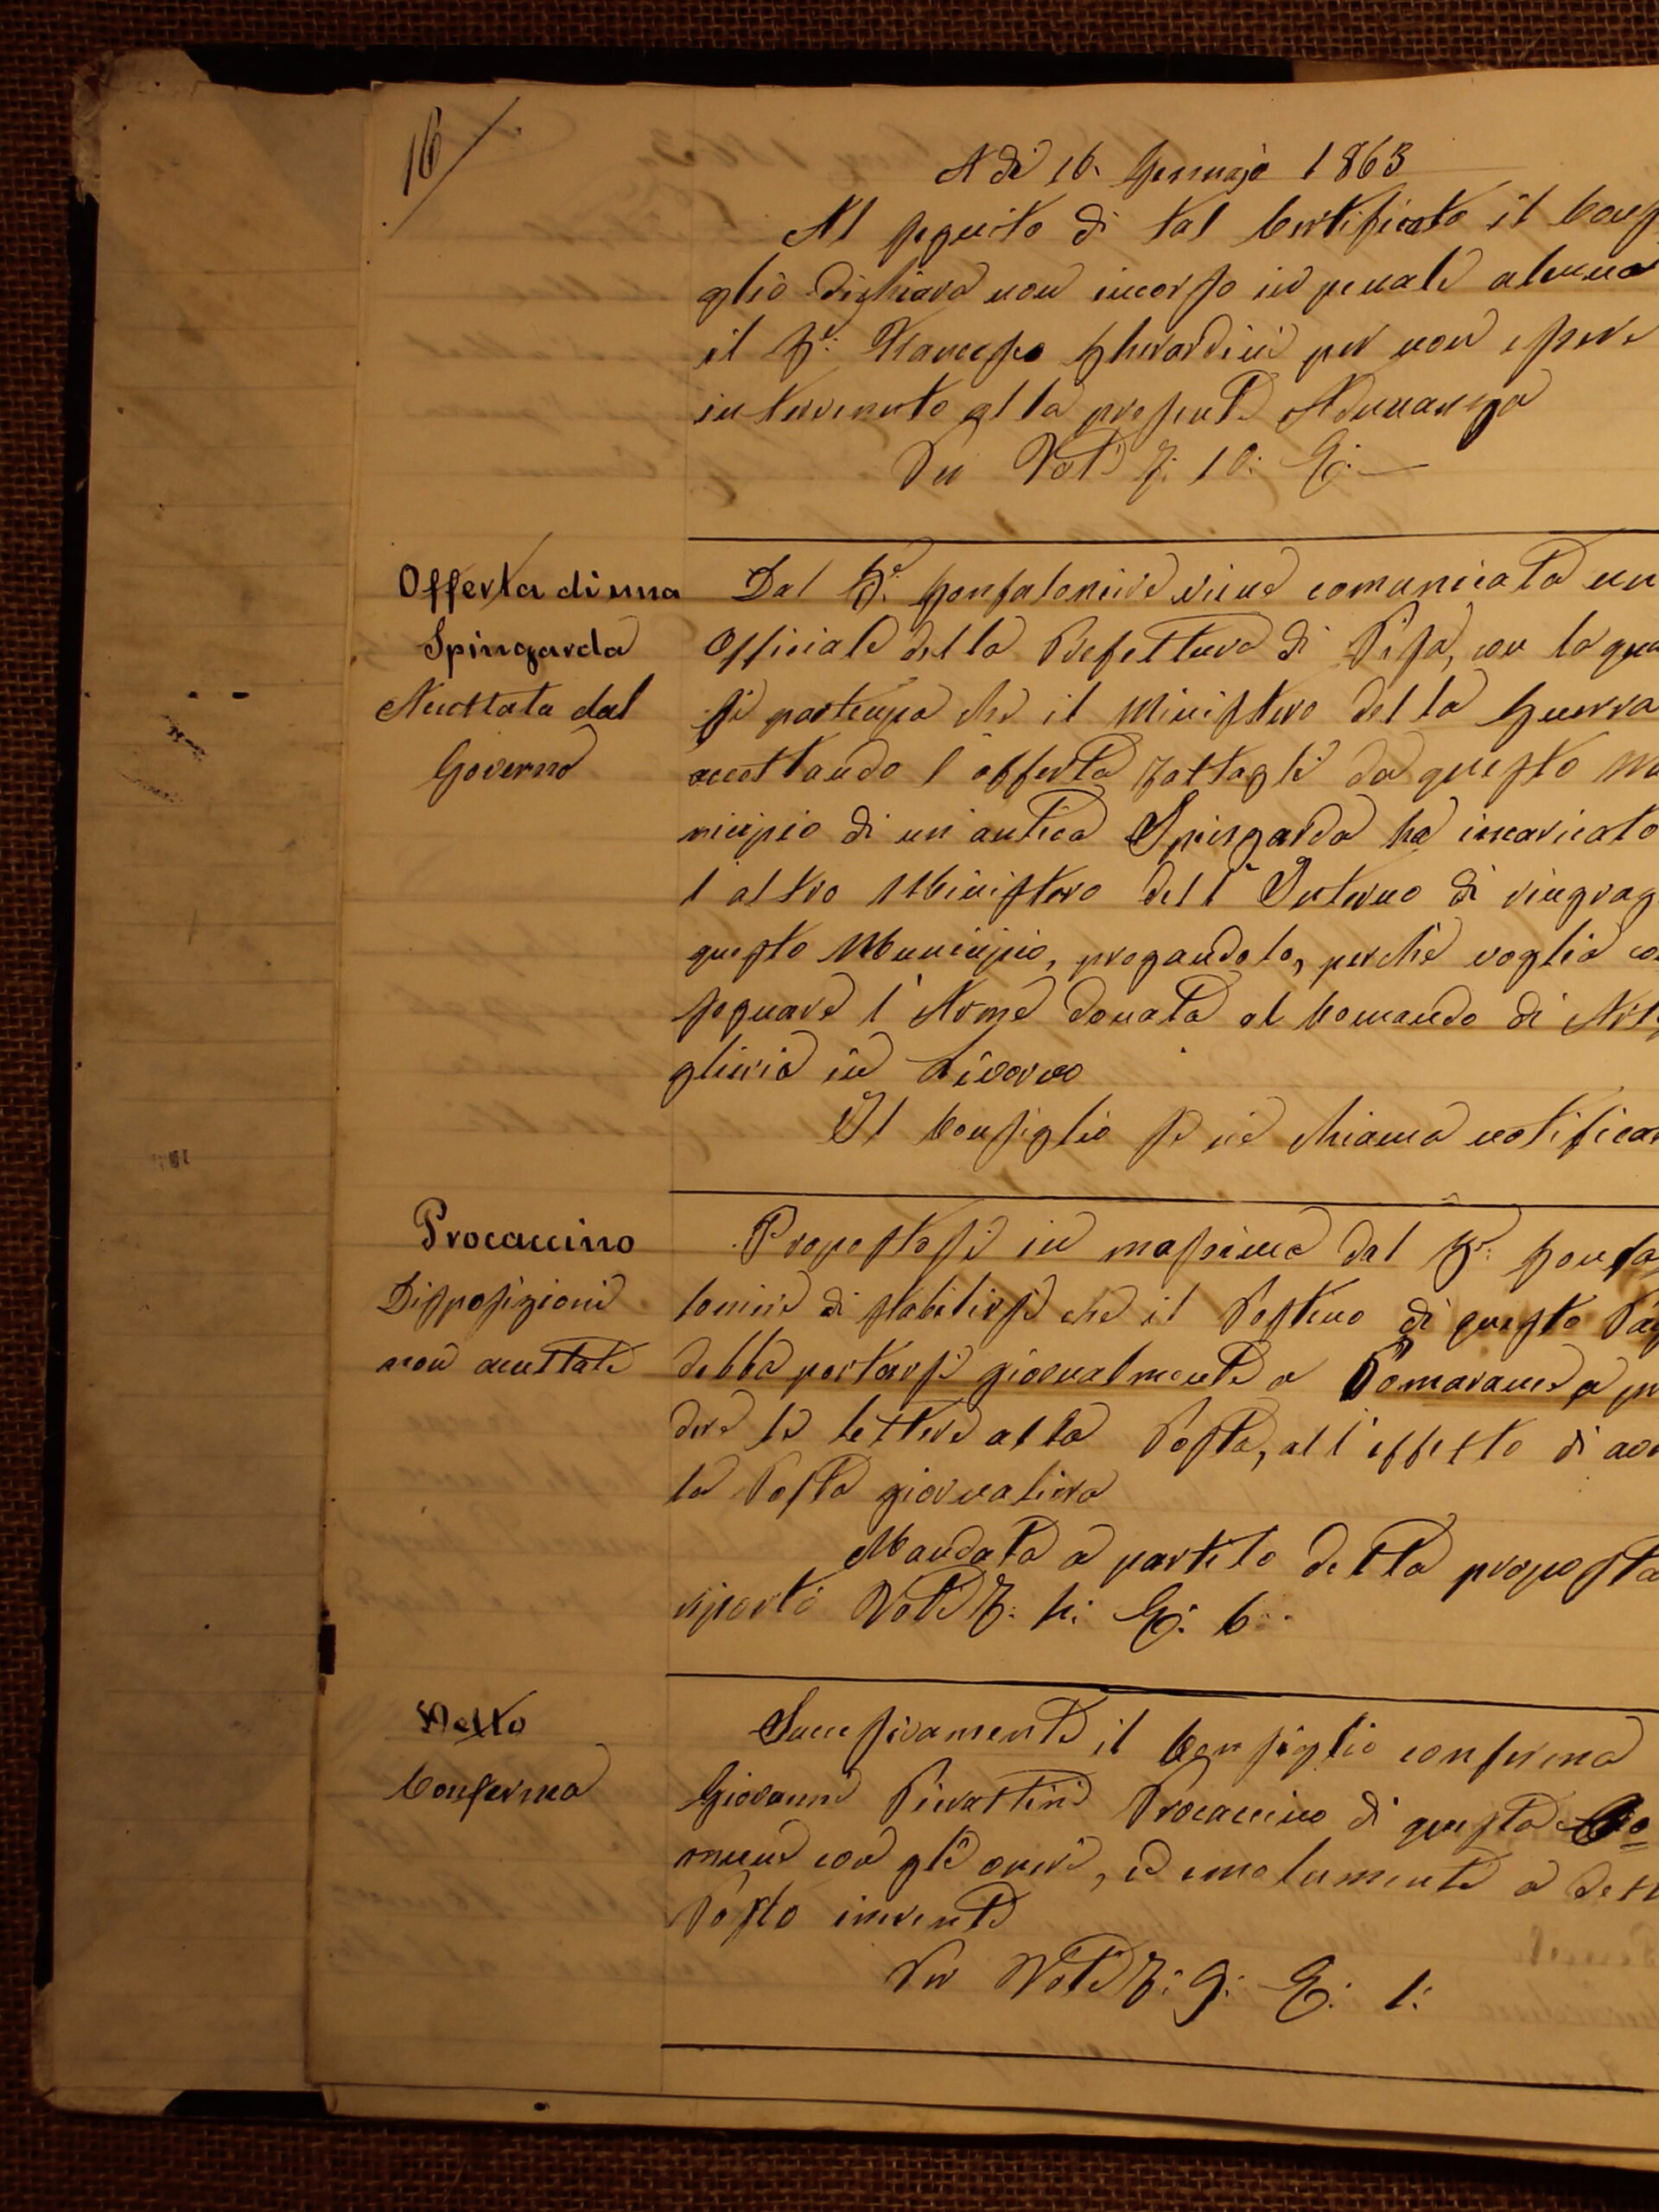 16
A dì 16. Gennajo 1863
Al seguito di tal Certificato il Consi
glio dichiara non incorso in penale alcuna
il Sr: Francesco Gherardini per non essere
intervenuto alla presente Adunanza
Per Voti F: 10: C:
Offerta di una
Spingarda
Accettata dal
Governo
Dal Sr: Gonfaloniere viene comunicata un
Officiale della Prefettura di Pisa, con la qua
si partecipa che il Ministero della Guerra
accettando l'offerta fattagli da questo Mu
nicipio di un'antica Spingarda ha incaricato
l'altro Ministero dell'Interno di ringraz
questo Municipio, pregandolo, perchè voglia co
segnare l'Arme donata al Comando di Arti
glieria in Livorno
Il Consiglio se ne chiama notifica
Procaccino
Disposizioni
non accettate
Propostosi in massima dal Sr: Gonfa
loniere di stabilirsi che il Postino di questo Pae
debba portarsi giornalmente a Pomarance a pr
dere le lettere alla Posta, all'effetto di ave
la Posta giornaliera
Mandata a partito detta proposta
riportò Voti F: 4: C: 6.
Detto
Conferma
Successivamente il Consiglio conferma
Giovanni Procaccino di questa Co=
mune con gli oneri, ed emolumenti a dett
Posto inerenti
Per Voti F: 9: C: 1: